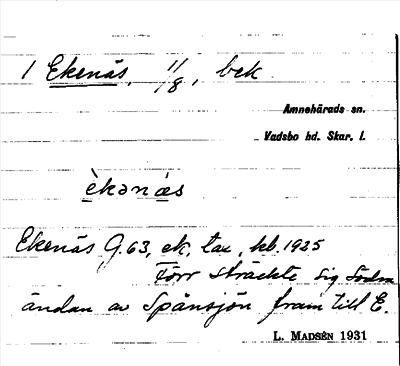 1 Ekenäs, 11/8, bek
Amnehärads sn.
Vadsbo hd. Skar. l.
èkənás
Ekenäs G.63, ek, tax, kb. 1925
Förr sträckte sig Södra
ändan av Spånsjön fram till E.
L. Madsén 1931